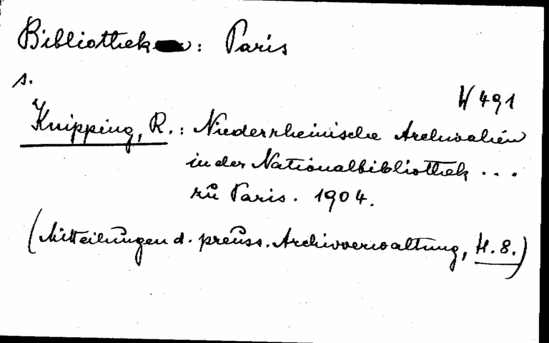 Bibliothek: Paris
s.
W 491
Knipping, R.: Niederrheinische Archivalien
in der Nationalbibliothek ...
zu Paris. 1904.
(Mitteilungen d. preuss. Archivverwaltung, H. 8.)